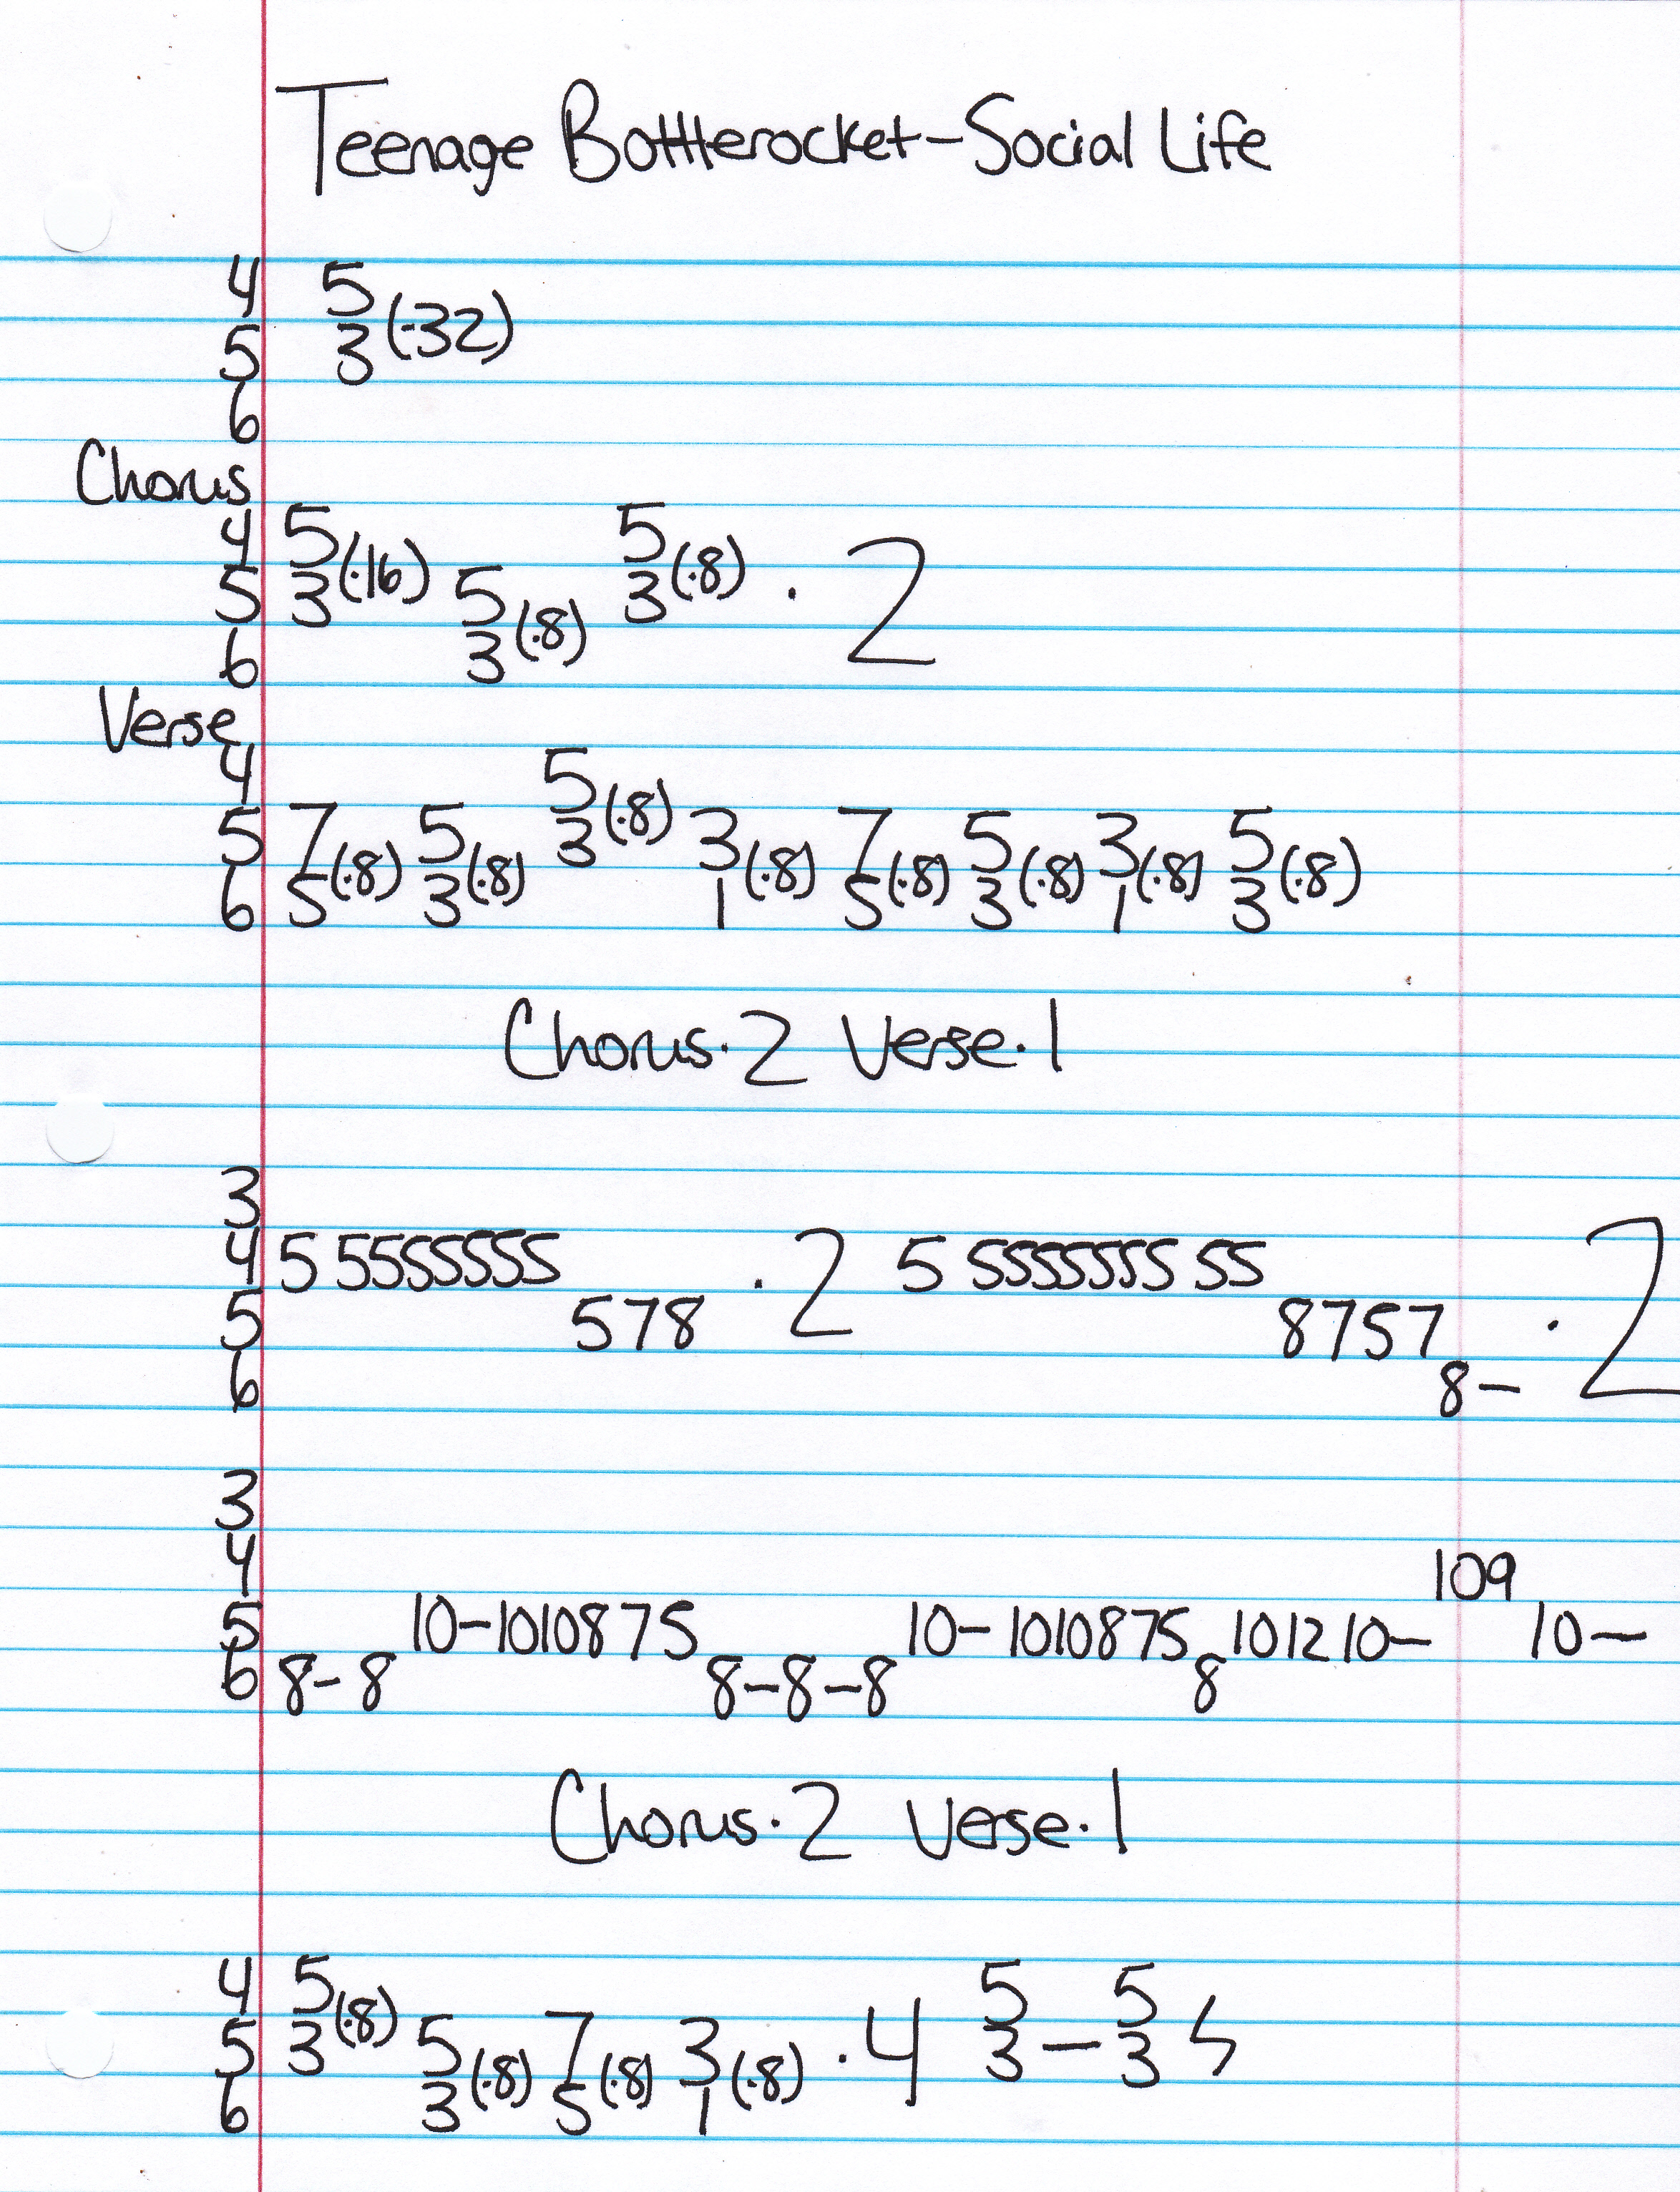 Teenage Bottlerocket-Social Life
4 5
5 3(·32)
6
Chorus
4 5 5
5 3(·16) 5 3(·8) · 2
6 3(·8)
Verse
4 5
5 7 5 3(·8) 3 7 5 3 5
6 5(·8) 3(·8) 1(·8) 5(·8) 3(·8) 1(·8) 3(·8)
Chorus·2 Verse·1
3
4 5 5555555 · 2 5 5555555 55
5 578 8757 · 2
6 8-
3
4 109
5 10-1010875 10-1010875 101210- 10-
6 8-8 8-8-8 8
Chorus·2 Verse·1
4 5 5 5
5 3(·8) 5 7 3 ·4 3-3
6 3(·8) 5(·8) 1(·8)